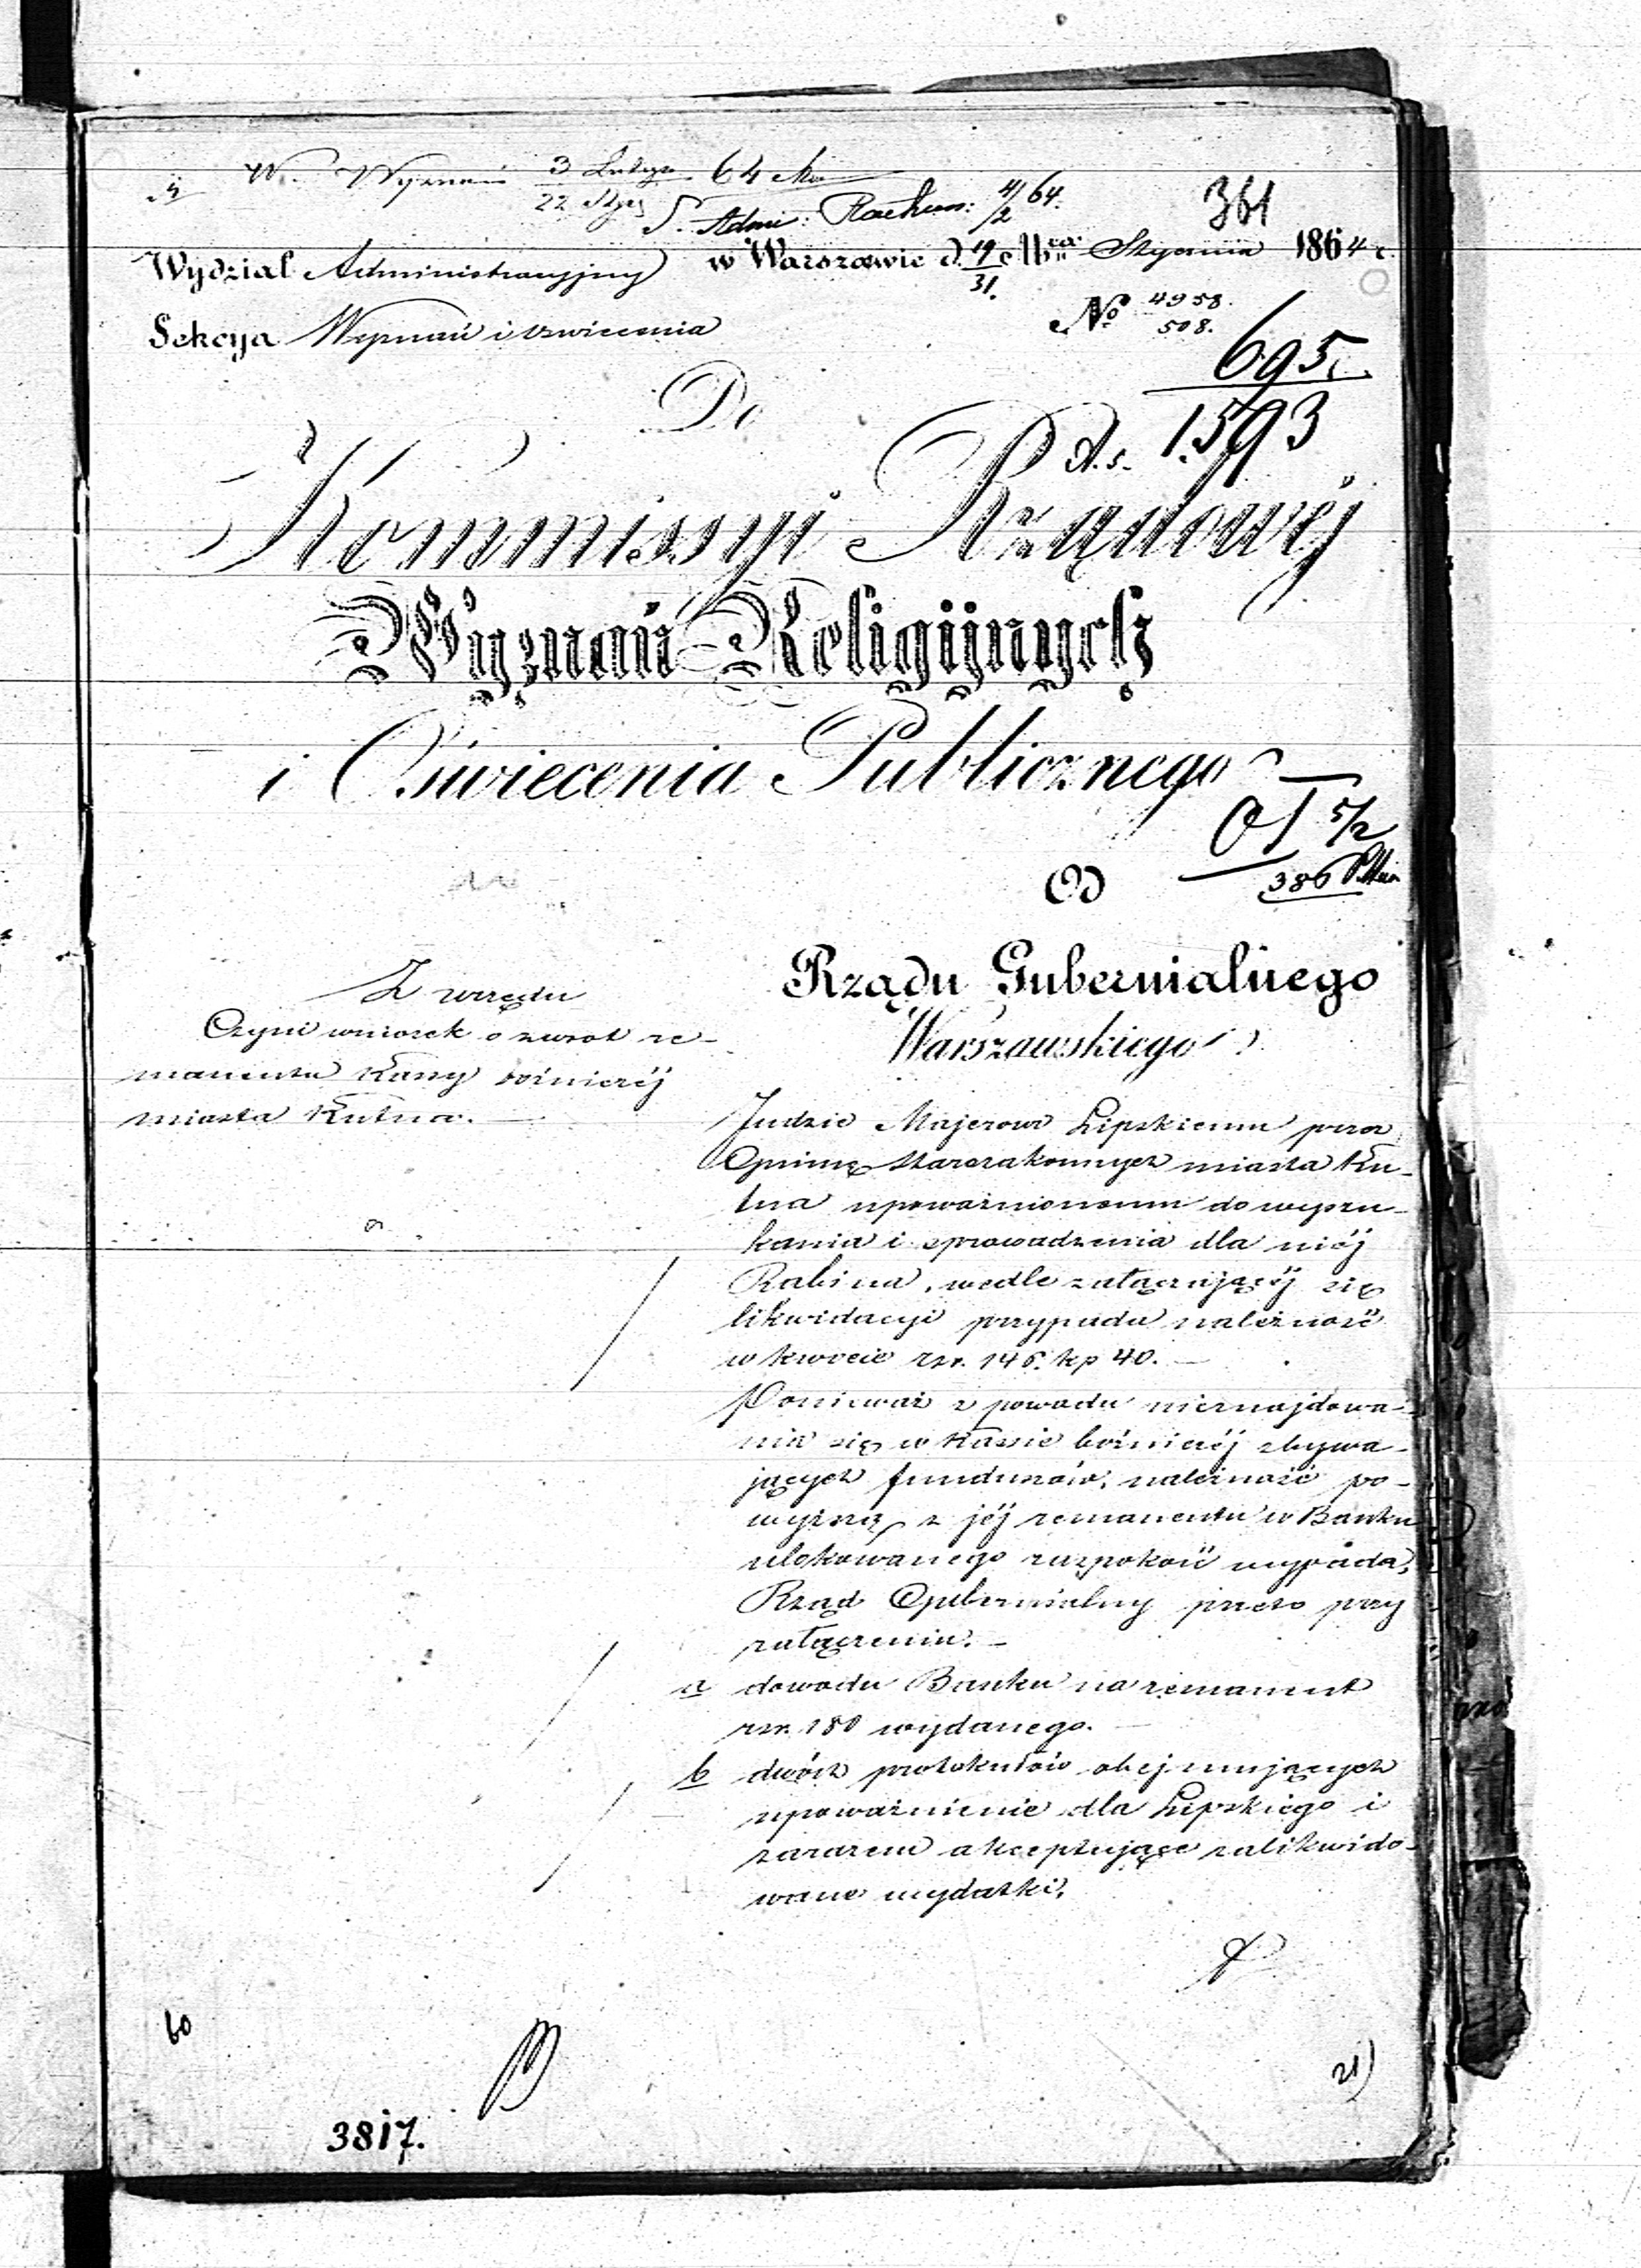 W. Wyznań 3 Lutego 64
22 Stycz
S. Admi: Rachun: 4/2 64.
361
Wydział Administracyjny w Warszawie d. 19/31. Mca Stycznia 1864 r.
Sekcya Wyznań i Oświecenia
No 4958.
508.
695
1593
Do
Kommissyi Rządowéj
Wyznań Religijnych
i Oświecenia Publicznego
5/2
386
Od
Rządu Gubernialnego
Warszawskiego
Z urzędu
Czyni wniosek o zwrot re-
manentu Kassy bóźniczéj
miasta Kutna.
Judzie Majerowi Lipskiemu przez
Gminę Starozakonnych miasta Ku-
tna upoważnionemu do wyszu-
kania i sprowadzenia dla niéj
Rabina, wedle załączającéj się
likwidacyi przypada należność
w kwocie rsr. 146. kp 40.
Ponieważ z powodu nieznajdowa-
nia się w Kassie bóźniczéj zbywa-
jących funduszów, należność po-
wyższą z jéj remanentu w Banku
ulokowanego zaspokoić wypada,
Rząd Gubernialny przeto przy
załączeniu.
a dowodu Banku na remanent
rsr. 180 wydanego.
b dwóch protokułów obejmujących
upoważnienie dla Lipskiego i
zarazem akceptujące zalikwido-
wane wydatki,
60
21)
3817.